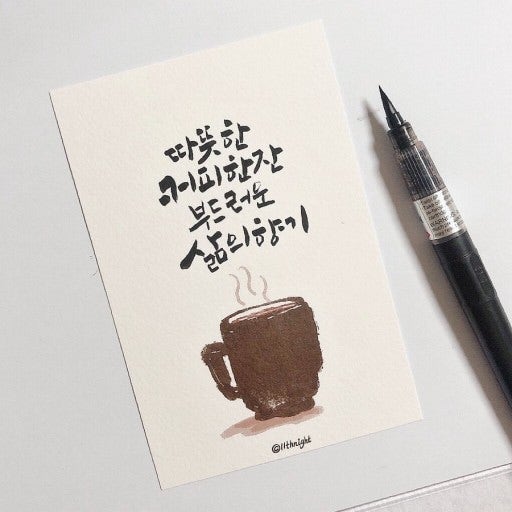 따뜻한
커피한잔
부드러운
삶의향기
©11thnight